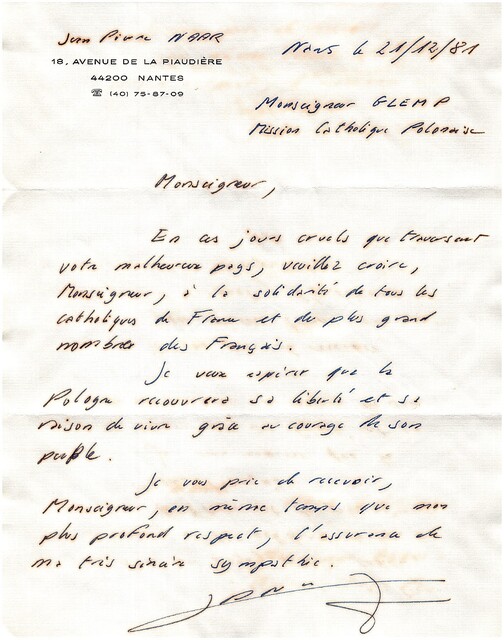 Jean Pierre NAAR
18, AVENUE DE LA PIAUDIÈRE
44200 NANTES
☎ (40) 75-87-09
Nantes le 21/12/81
Monseigneur GLEMP
Mission Catholique Polonaise
Monseigneur,
En ces jours cruels que traversent
votre malheureux pays, veuillez croire,
Monseigneur, à la solidarité de tous les
catholiques de France et du plus grand
nombre des Français.
Je veux espérer que la
Pologne recouvrera sa liberté et sa
raison de vivre grâce au courage de son
peuple.
Je vous prie de recevoir,
Monseigneur, en même temps que mon
plus profond respect, l'assurance de
ma très sincère sympathie.